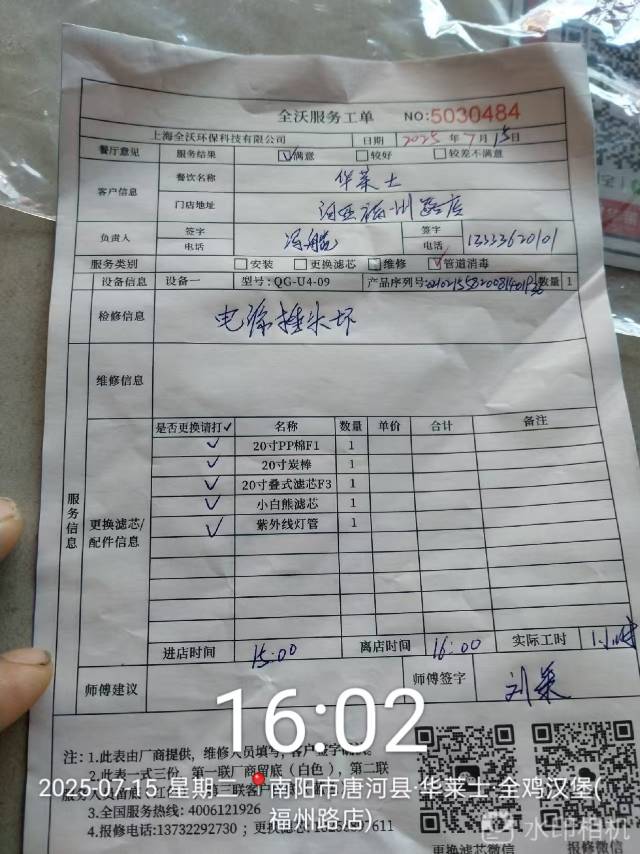 全沃服务工单 NO:5030484
上海全沃环保科技有限公司 日期 2025年7月15日
餐厅意见 服务结果 ☑满意 □较好 □较差不满意
客户信息 餐饮名称 华莱士
门店地址 福州路店
负责人 签字 电话 签字 电话 13333620101
服务类别 □安装 □更换滤芯 □维修 ☑管道消毒
设备信息 设备一 型号:QG-U4-09 产品序列号 数量 1
检修信息 电源插头坏
维修信息
服务信息
更换滤芯/配件信息
是否更换请打✓ 名称 数量 单价 合计 备注
✓ 20寸PP棉F1 1
✓ 20寸炭棒 1
✓ 20寸叠式滤芯F3 1
✓ 小白熊滤芯 1
✓ 紫外线灯管 1
进店时间 15:00 离店时间 16:00 实际工时 1小时
师傅建议 师傅签字 刘
16:02
注: 1.此表由厂商提供，维修人员填写，客户签字
2.此表一式三份，第一联厂商留底（白色），第二联
2025-07-15 星期 南阳市唐河县·华莱士·全鸡汉堡(
福州路店)
服务人员留底 第三联客户
3.全国服务热线: 4006121926
4.报修电话:13732292730; 更换滤芯 7611
更换滤芯微信 报修微信
水印相机